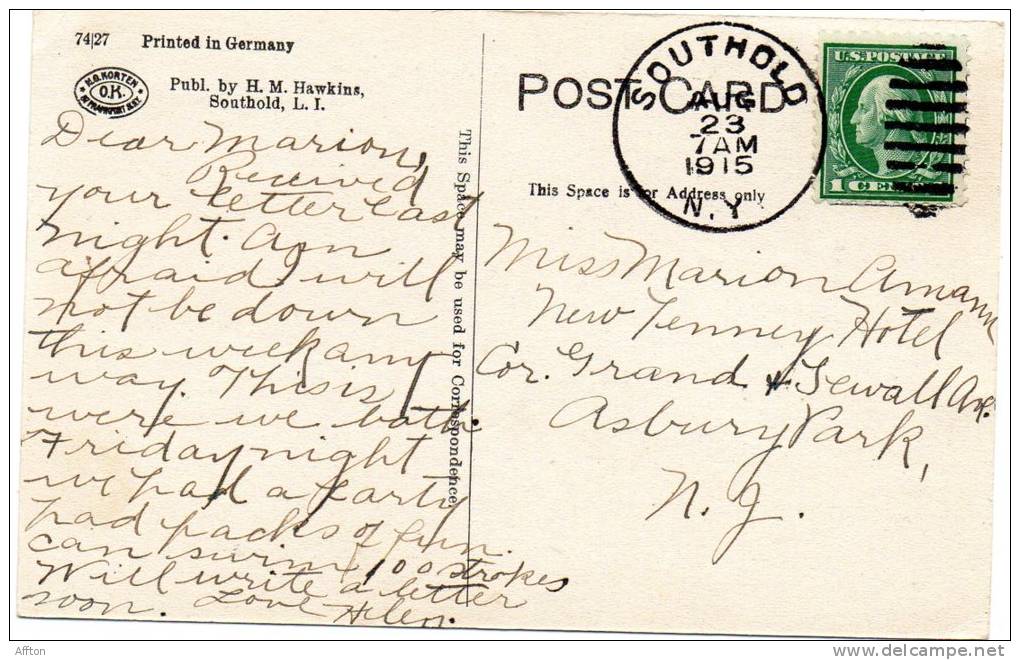 74|27 Printed in Germany
O.K.
Publ. by H. M. Hawkins,
Southold, L. I.
Dear Marion,
Received
your letter last
night. Am
afraid I will
not be down
this week any
way. This is
were we bath.
Friday night
we had a party
had packs of fun.
can swim 100 strokes
Will write a letter
soon. Love Helen.
This Space may be used for Correspondence
POST CARD
This Space is for Address only
SOUTHOLD
AUG
23
7AM
1915
N.Y
U.S. POSTAGE
1 CENT
Miss Marion Amann
New Tenney Hotel
Cor. Grand & Sewall Av.
Asbury Park,
N. J.
Affton
www.delcampe.net